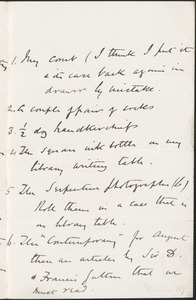 1. My comb (I think I put it
& its case back again in
drawer by mistake.
2. A couple of pair of socks
3. ½ dz handkerchiefs
4. The square ink bottle on my
library writing table.
5. The Serpentine photographs (6)
Roll them in a case that is
on library table.
6. The "Contemporary" for August
then an articles by Sir D.
& Francis Galton that we
must read